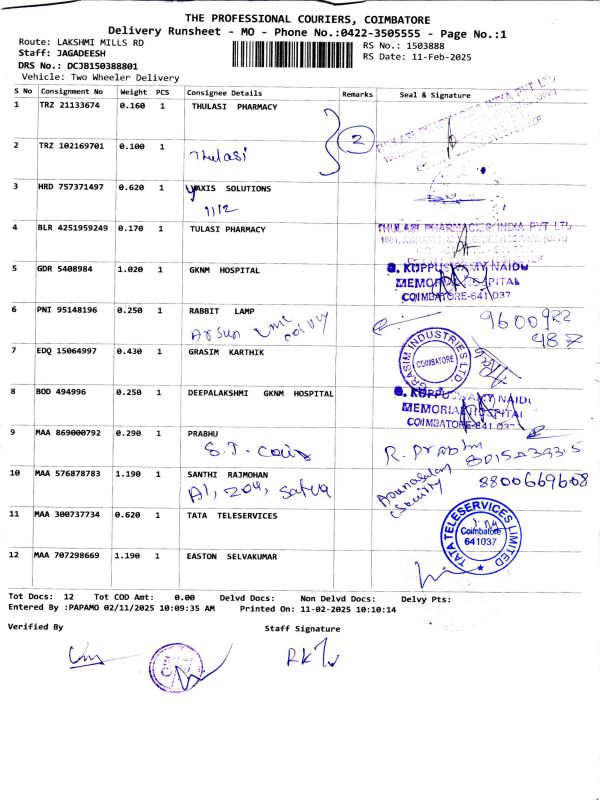 THE PROFESSIONAL COURIERS, COIMBATORE
Delivery Runsheet - MO - Phone No.:0422-3505555 - Page No.:1
Route: LAKSHMI MILLS RD
RS No.: 1503888
Staff: JAGADEESH
RS Date: 11-Feb-2025
DRS No.: DCJB150388801
Vehicle: Two Wheeler Delivery
S No Consignment No Weight PCS Consignee Details Remarks Seal & Signature
1 TRZ 21133674 0.160 1 THULASI PHARMACY
2
2 TRZ 102169701 0.100 1
Thulasi
3 HRD 757371497 0.620 1 AXIS SOLUTIONS
1112
4 BLR 4251959249 0.170 1 TULASI PHARMACY
THULASI PHARMACIES INDIA PVT LTD
5 GDR 5408984 1.020 1 GKNM HOSPITAL
G. KUPPUSWAMY NAIDU
MEMORIAL HOSPITAL
COIMBATORE-641 037
6 PNI 95148196 0.250 1 RABBIT LAMP
9600922
487
7 EDQ 15064997 0.430 1 GRASIM KARTHIK
GRASIM INDUSTRIES LTD.
COIMBATORE
8 BOD 494996 0.250 1 DEEPALAKSHMI GKNM HOSPITAL
G. KUPPUSWAMY NAIDU
MEMORIAL HOSPITAL
COIMBATORE-641 037
9 MAA 869000792 0.290 1 PRABHU
R. Prabhu
10 MAA 576878783 1.190 1 SANTHI RAJMOHAN
A1, 204, Satva
8800669608
11 MAA 300737734 0.620 1 TATA TELESERVICES
TATA TELESERVICES LIMITED
Coimbatore
641037
12 MAA 707298669 1.190 1 EASTON SELVAKUMAR
Tot Docs: 12 Tot COD Amt: 0.00 Delvd Docs: Non Delvd Docs: Delvy Pts:
Entered By :PAPAMO 02/11/2025 10:09:35 AM Printed On: 11-02-2025 10:10:14
Verified By Staff Signature